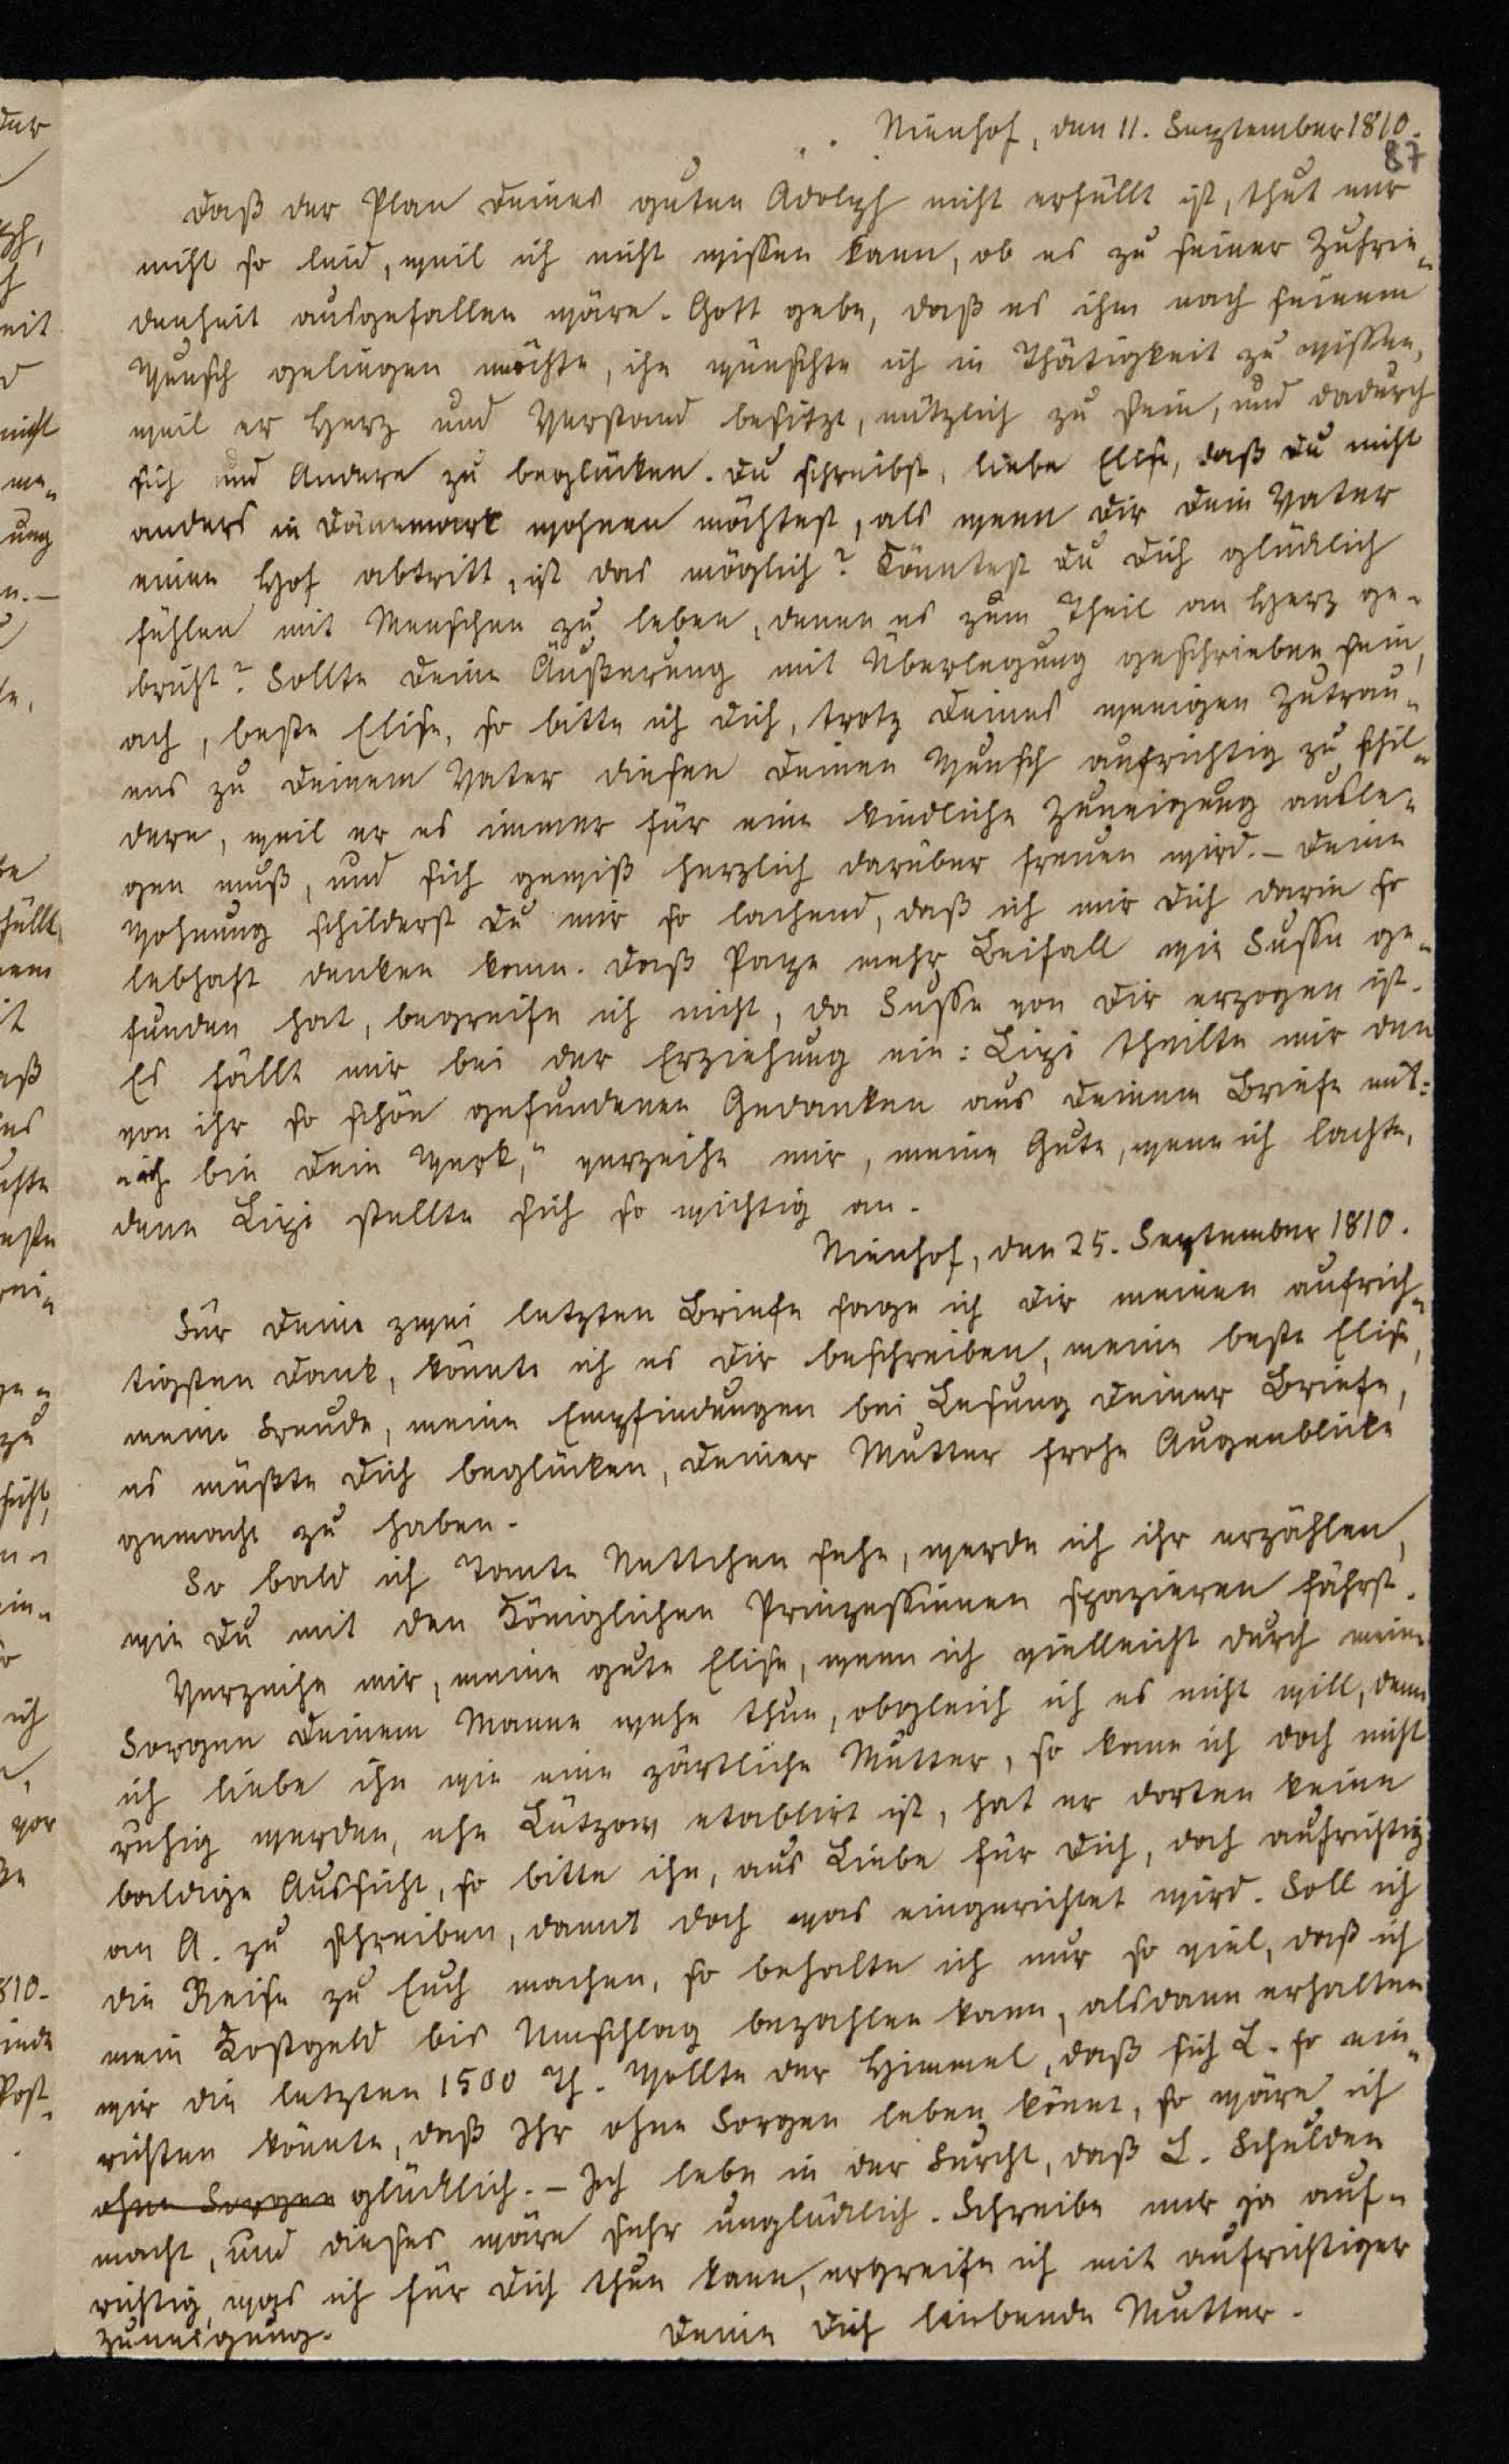 Nienhof, den 11. September 1810.
87
Daß der Plan Deines guten Adolph nicht erfüllt ist, thut mir
nicht so leid, weil ich nicht wissen kann, ob es zu seiner Zufrie-
denheit ausgefallen wäre. Gott gebe, daß es ihm nach seinem
Wunsch gelingen möchte, ihn wünschte ich in Thätigkeit zu wissen,
weil er Herz und Verstand besitzt, nützlich zu sein, und dadurch
sich und Andere zu beglücken. Du schreibst, liebe Elise, daß Du nicht
anders in Dänemark wohnen möchtest, als wenn Dir Dein Vater
einen Hof abtritt, ist das möglich? Könntest Du Dich glücklich
fühlen mit Menschen zu leben, denen es zum Theil an Herz ge-
bricht? Sollte Deine Äußerung mit Überlegung geschrieben sein,
ach, beste Elise, so bitte ich Dich, trotz Deines wenigen Zutrau-
ens zu Deinem Vater diesen Deinen Wunsch aufrichtig zu schil-
dern, weil er es immer für eine kindliche Zuneigung ausle-
gen muß, und sich gewiß herzlich darüber freuen wird. – Deine
Wohnung schilderst Du mir so lachend, daß ich mir Dich darin so
lebhaft denken kann. Daß Page mehr Beifall wie Susse ge-
funden hat, begreife ich nicht, da Susse von Dir erzogen ist.
Es fällt mir bei der Erziehung ein: Lizi theilte mir den
von ihr so schön gefundenen Gedanken aus Deinem Briefe mit:
„ich bin Dein Werk,“ verzeihe mir, meine Gute, wenn ich lachte,
denn Lizi stellte sich so wichtig an.
Nienhof, den 25. September 1810.
Für Deine zwei letzten Briefe sage ich Dir meinen aufrich-
tigsten Dank, könnte ich es Dir beschreiben, meine beste Elise,
meine Freude, meine Empfindungen bei Lesung Deiner Briefe,
es müßte Dich beglücken, Deiner Mutter frohe Augenblicke
gemacht zu haben.
So bald ich Tante Nettchen sehe, werde ich ihr erzählen,
wie Du mit den Königlichen Prinzessinnen spazieren fährst.
Verzeihe mir, meine gute Elise, wenn ich vielleicht durch meine
Sorgen Deinem Manne wehe thue, obgleich ich es nicht will, denn
ich liebe ihn wie eine zärtliche Mutter, so kann ich doch nicht
ruhig werden, ehe Lützow etablirt ist, hat er dorten keine
baldige Aussicht, so bitte ihn, aus Liebe für Dich, doch aufrichtig
an A. zu schreiben, damit doch was eingerichtet wird. Soll ich
die Reise zu Euch machen, so behalte ich nur so viel, daß ich
mein Kostgeld bis Umschlag bezahlen kann, alsdann erhalten
wir die letzten 1500 Th. Wollte der Himmel, daß sich L. so ein-
richten könnte, daß Ihr ohne Sorgen leben könnt, so wäre ich
ohne Sorgen glücklich. – Ich lebe in der Furcht, daß L. Schulden
macht, und dieses wäre sehr unglücklich. Schreibe mir ja auf-
richtig, was ich für Dich thun kann, ergreife ich mit aufrichtiger
Zuneigung.
Deine Dich liebende Mutter.